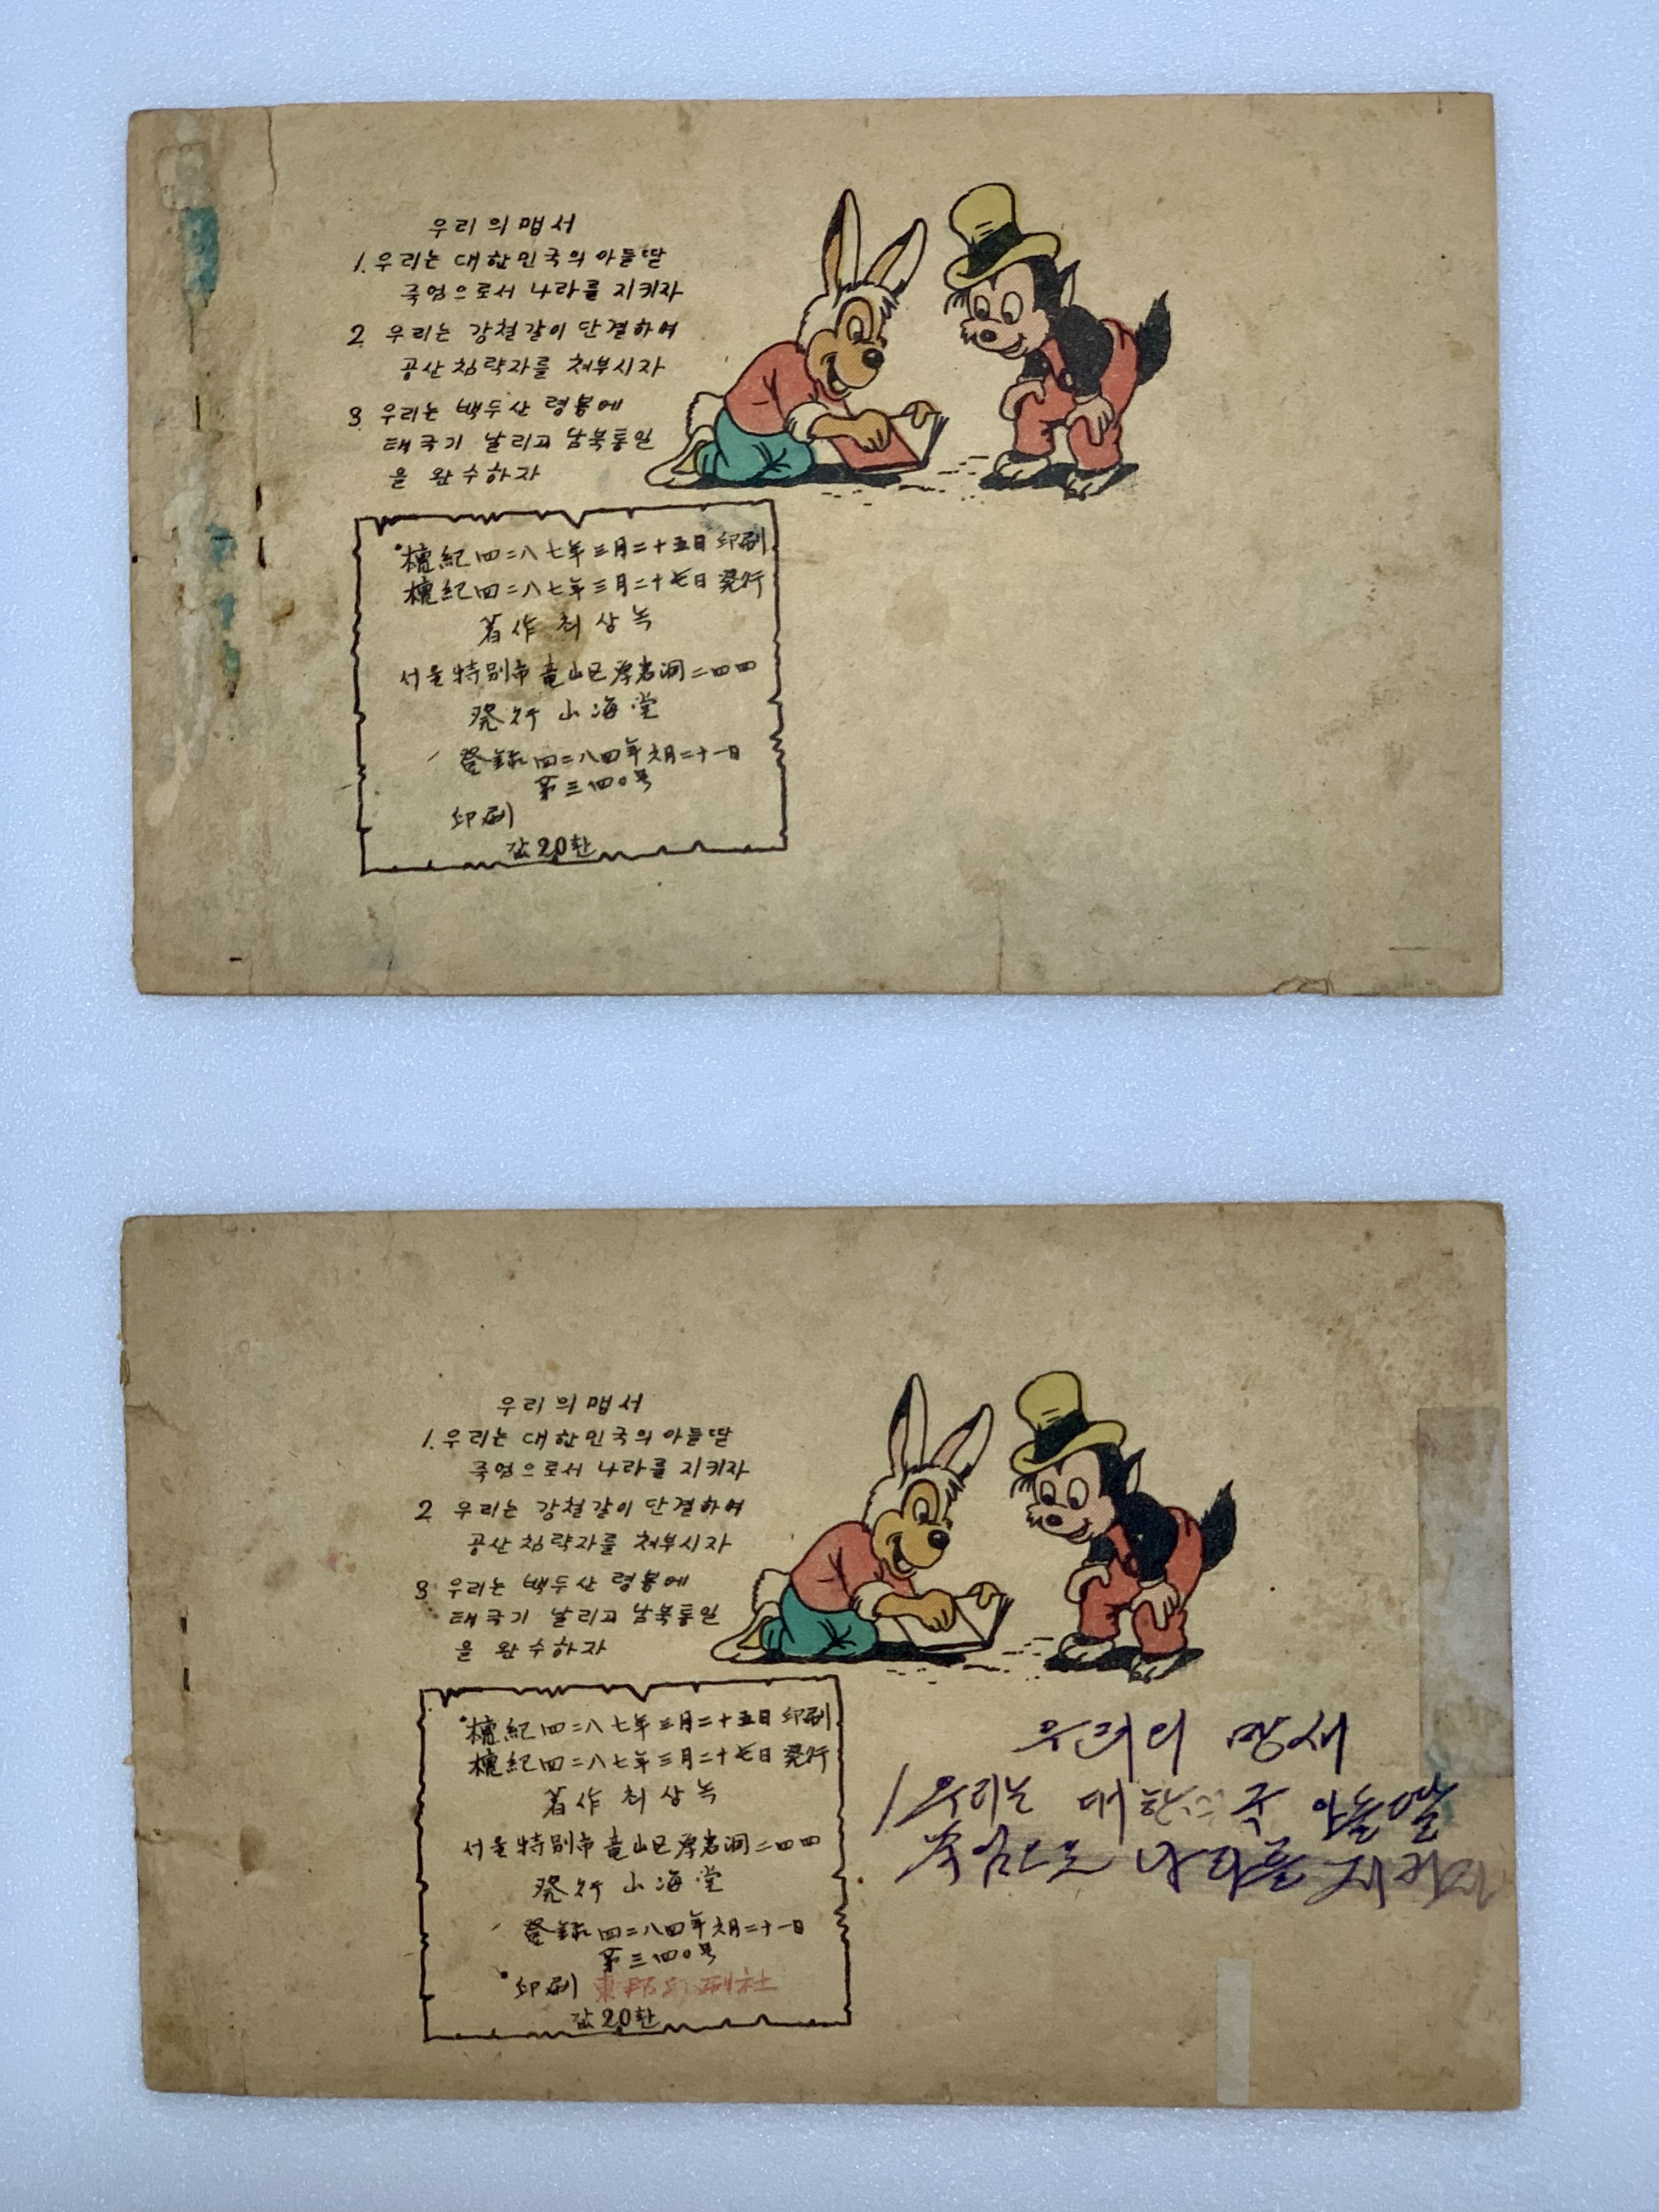 우리의 맵서
1. 우리는 대한민국의 아들딸
죽엄으로서 나라를 지키자
2. 우리는 강철같이 단결하여
공산침략자를 처부시자
3. 우리는 백두산 령봉에
태극기 날리고 남북통일
을 완수하자
檀紀四二八七年三月二十五日 印刷
檀紀四二八七年三月二十七日 発行
著作 최상녹
서울特別市 竜山区 厚岩洞 二四四
発行 山海堂
登録 四二八四年 六月二十一日
第三四〇号
印刷
값 20환
우리의 맵서
1. 우리는 대한민국의 아들딸
죽엄으로서 나라를 지키자
2. 우리는 강철같이 단결하여
공산침략자를 처부시자
3. 우리는 백두산 령봉에
태극기 날리고 남북통일
을 완수하자
檀紀四二八七年三月二十五日 印刷
檀紀四二八七年三月二十七日 発行
著作 최상녹
서울特別市 竜山区 厚岩洞 二四四
発行 山海堂
登録 四二八四年 六月二十一日
第三四〇号
印刷 東邦印刷社
값 20환
우리의 망세
1 우리는 대한 국 아들딸
죽엄으로 나라를